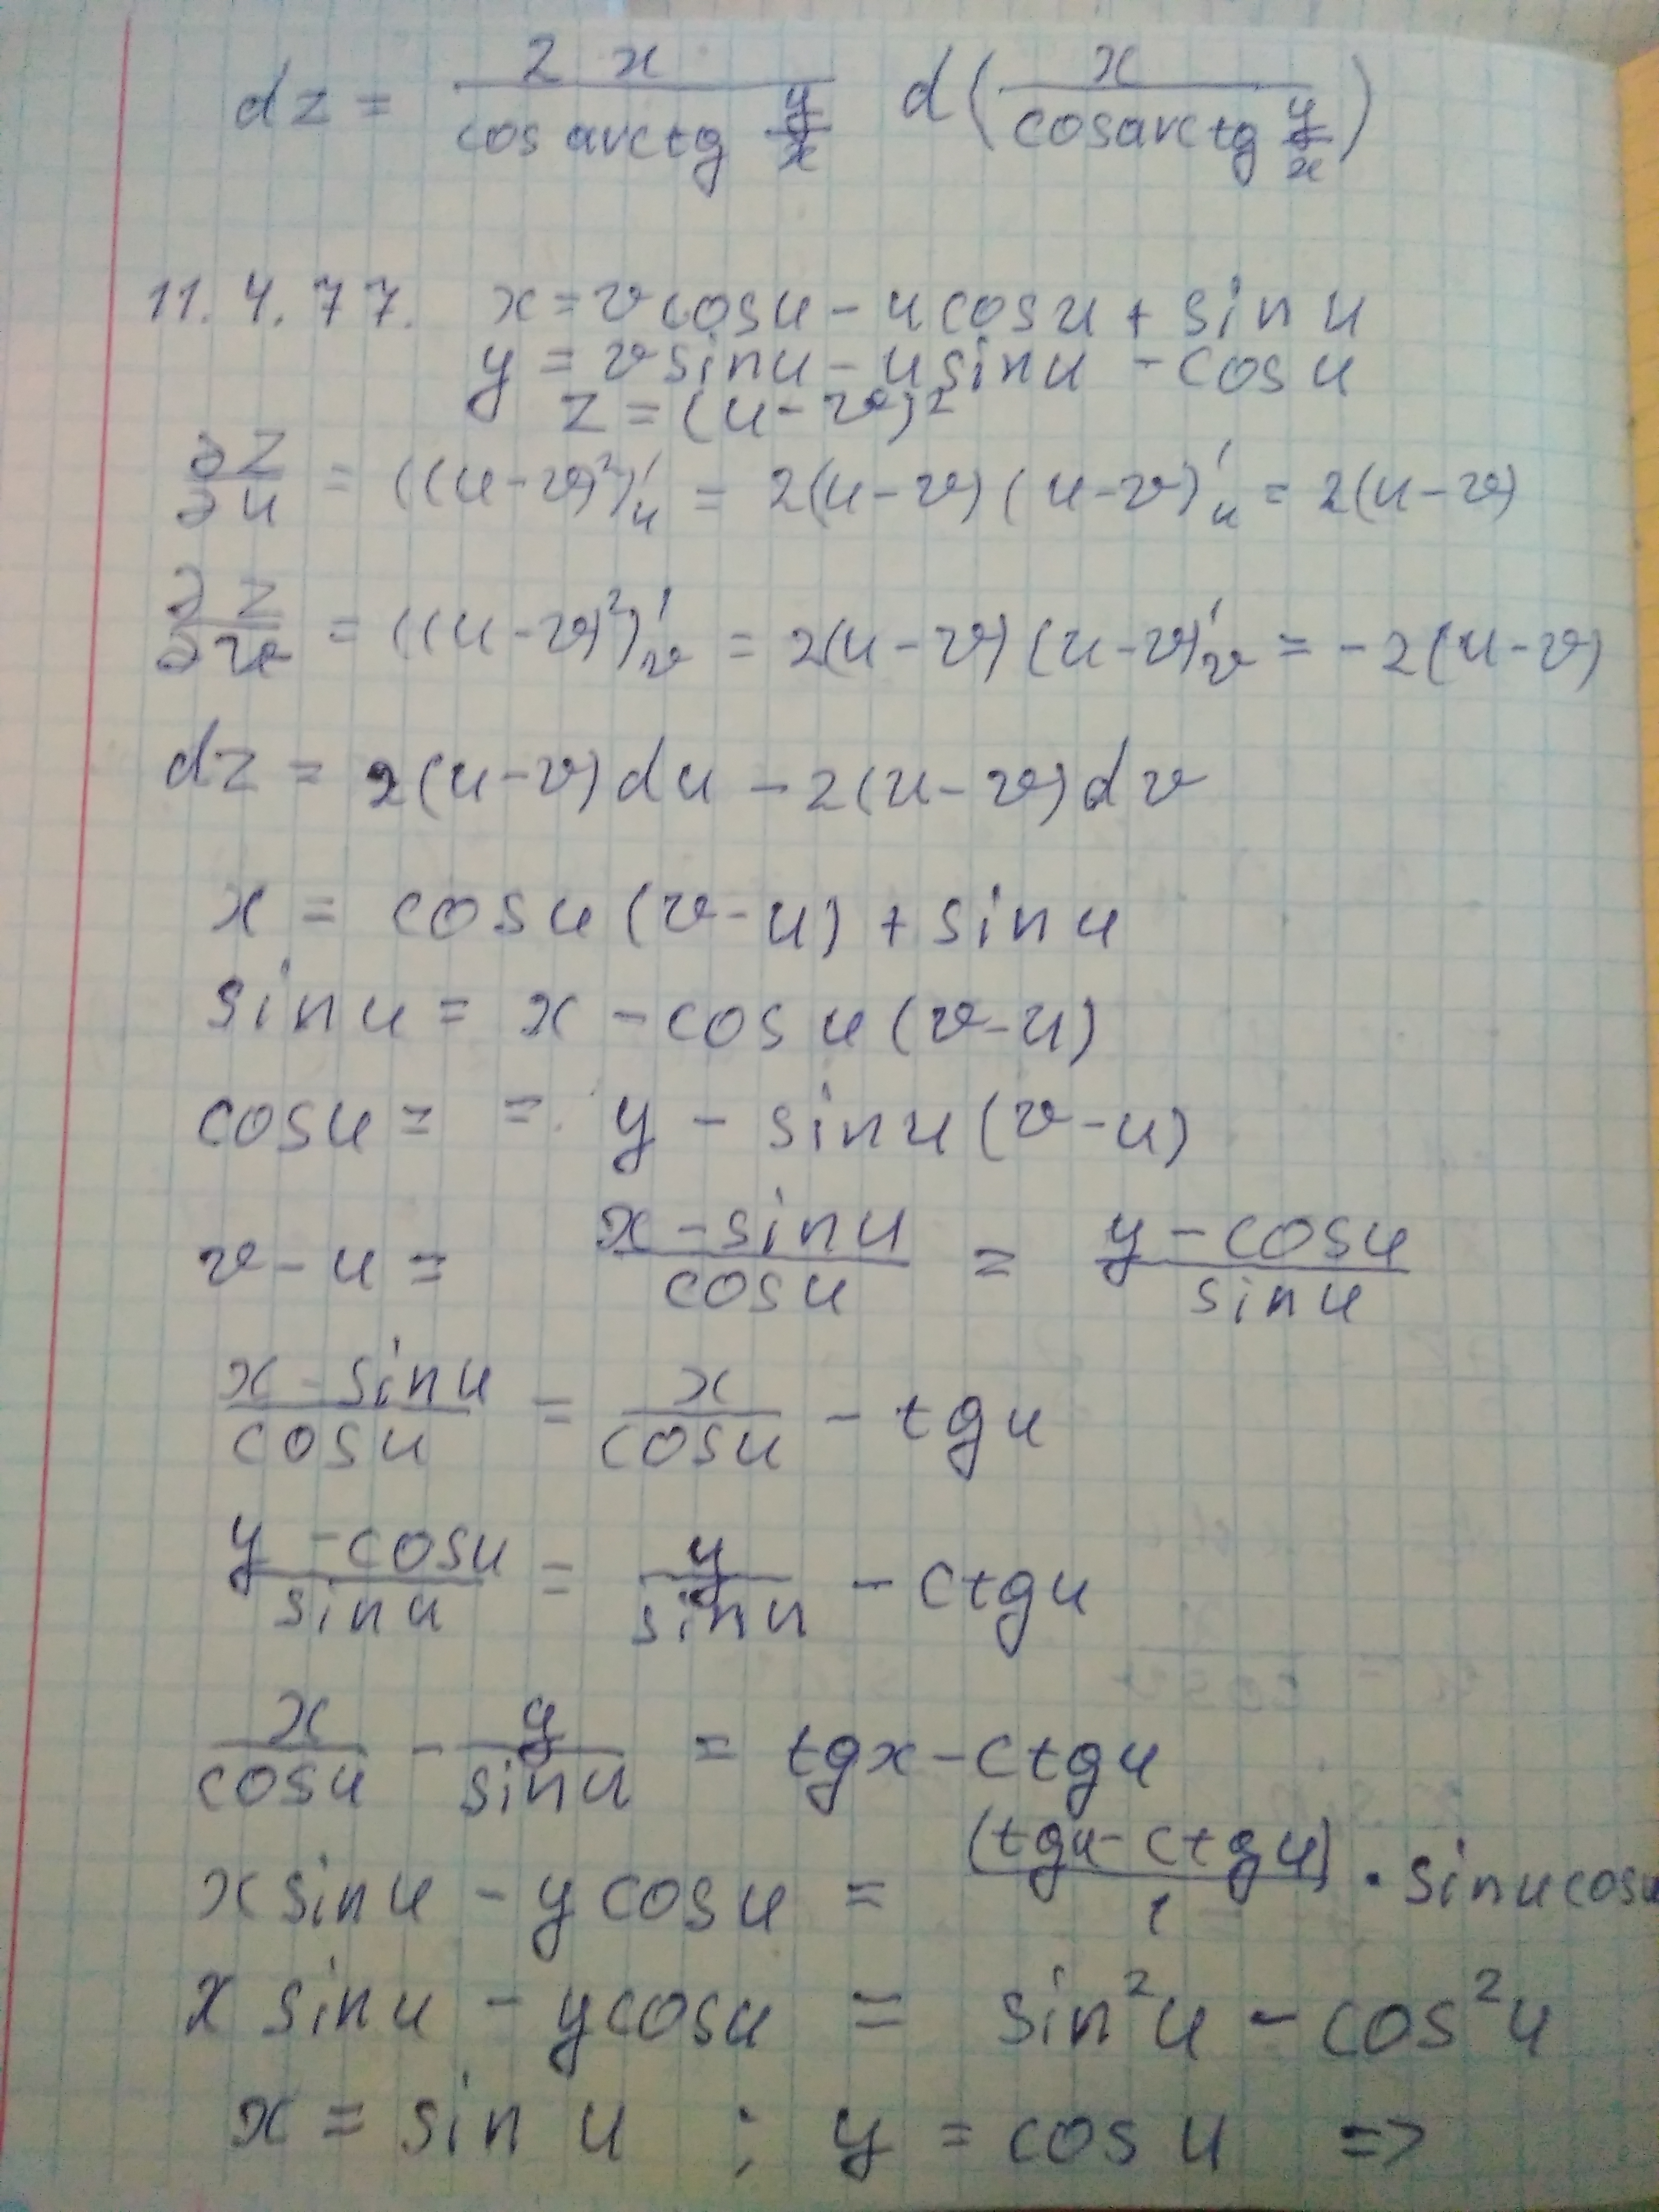 dz = 2x/(cos arctg y/x) d(x/(cos arctg y/x))
11.4.77. x = v cos u - u cos u + sin u
y = v sin u - u sin u - cos u
z = (u - v)²
∂z/∂u = ((u - v)²)'u = 2(u - v)(u - v)'u = 2(u - v)
∂z/∂v = ((u - v)²)'v = 2(u - v)(u - v)'v = -2(u - v)
dz = 2(u - v)du - 2(u - v)dv
x = cos u (v - u) + sin u
sin u = x - cos u (v - u)
cos u = = y - sin u (v - u)
v - u = (x - sin u)/(cos u) = (y - cos u)/(sin u)
(x - sin u)/(cos u) = x/(cos u) - tg u
(y - cos u)/(sin u) = y/(sin u) - ctg u
x/(cos u) - y/(sin u) = tg x - ctg u
x sin u - y cos u = (tg u - ctg u)/1 · sin u cos u
x sin u - y cos u = sin² u - cos² u
x = sin u ; y = cos u =>